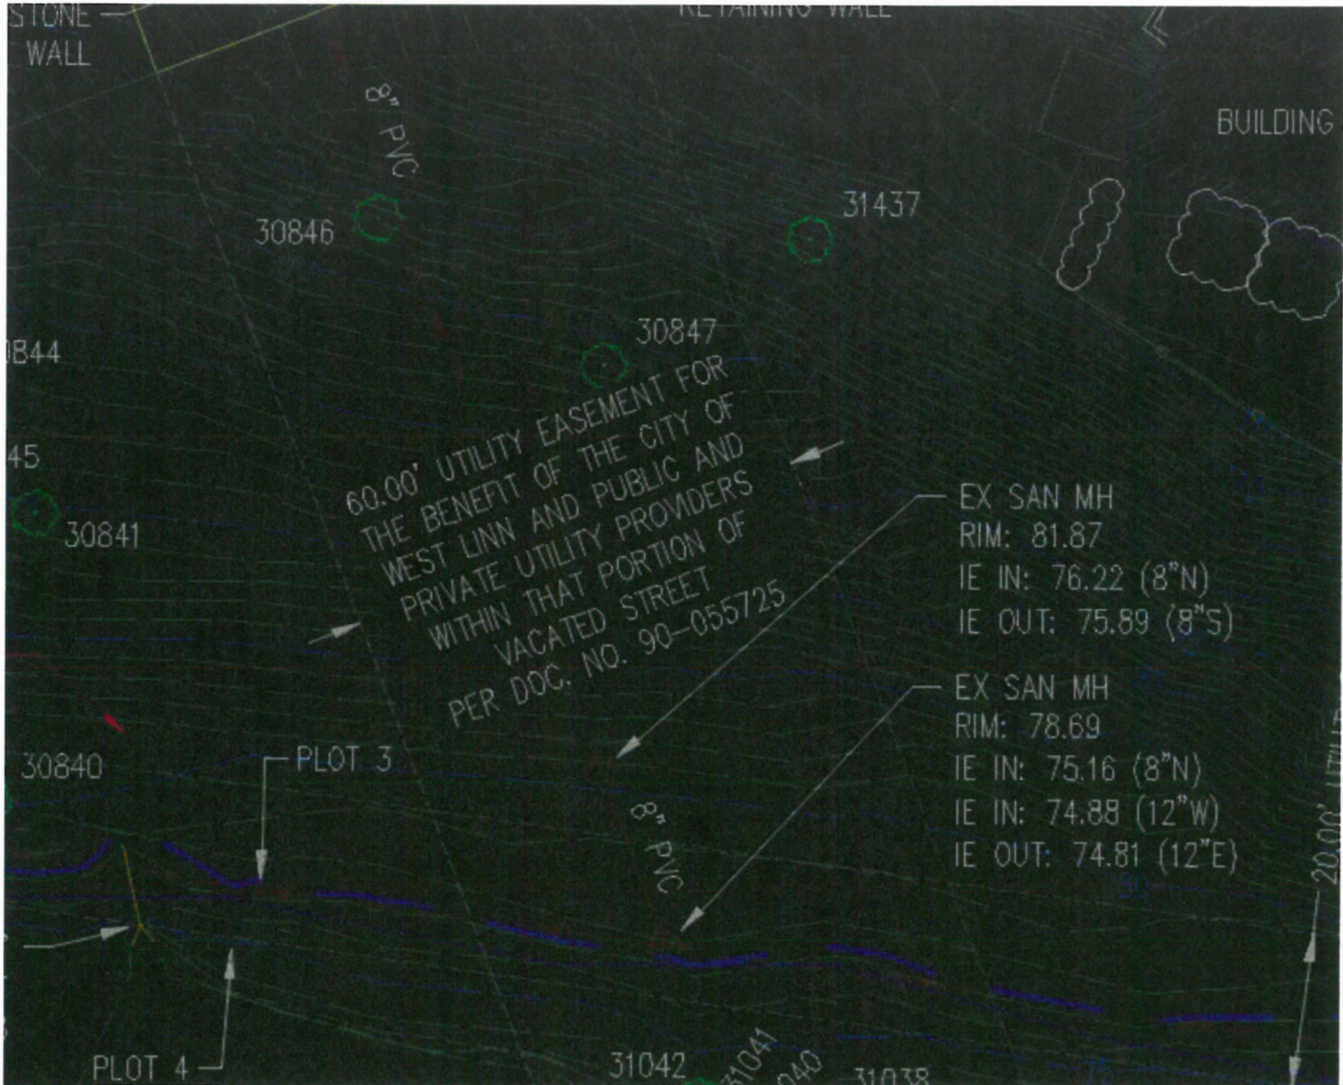 STONE
WALL
RETAINING WALL
8" PVC
BUILDING
30846
31437
30847
0844
45
30841
60.00' UTILITY EASEMENT FOR
THE BENEFIT OF THE CITY OF
WEST LINN AND PUBLIC AND
PRIVATE UTILITY PROVIDERS
WITHIN THAT PORTION OF
VACATED STREET
PER DOC. NO. 90-055725
EX SAN MH
RIM: 81.87
IE IN: 76.22 (8"N)
IE OUT: 75.89 (8"S)
EX SAN MH
RIM: 78.69
IE IN: 75.16 (8"N)
IE IN: 74.88 (12"W)
IE OUT: 74.81 (12"E)
30840
PLOT 3
8" PVC
20.00'
PLOT 4
31042
31041
040
31038